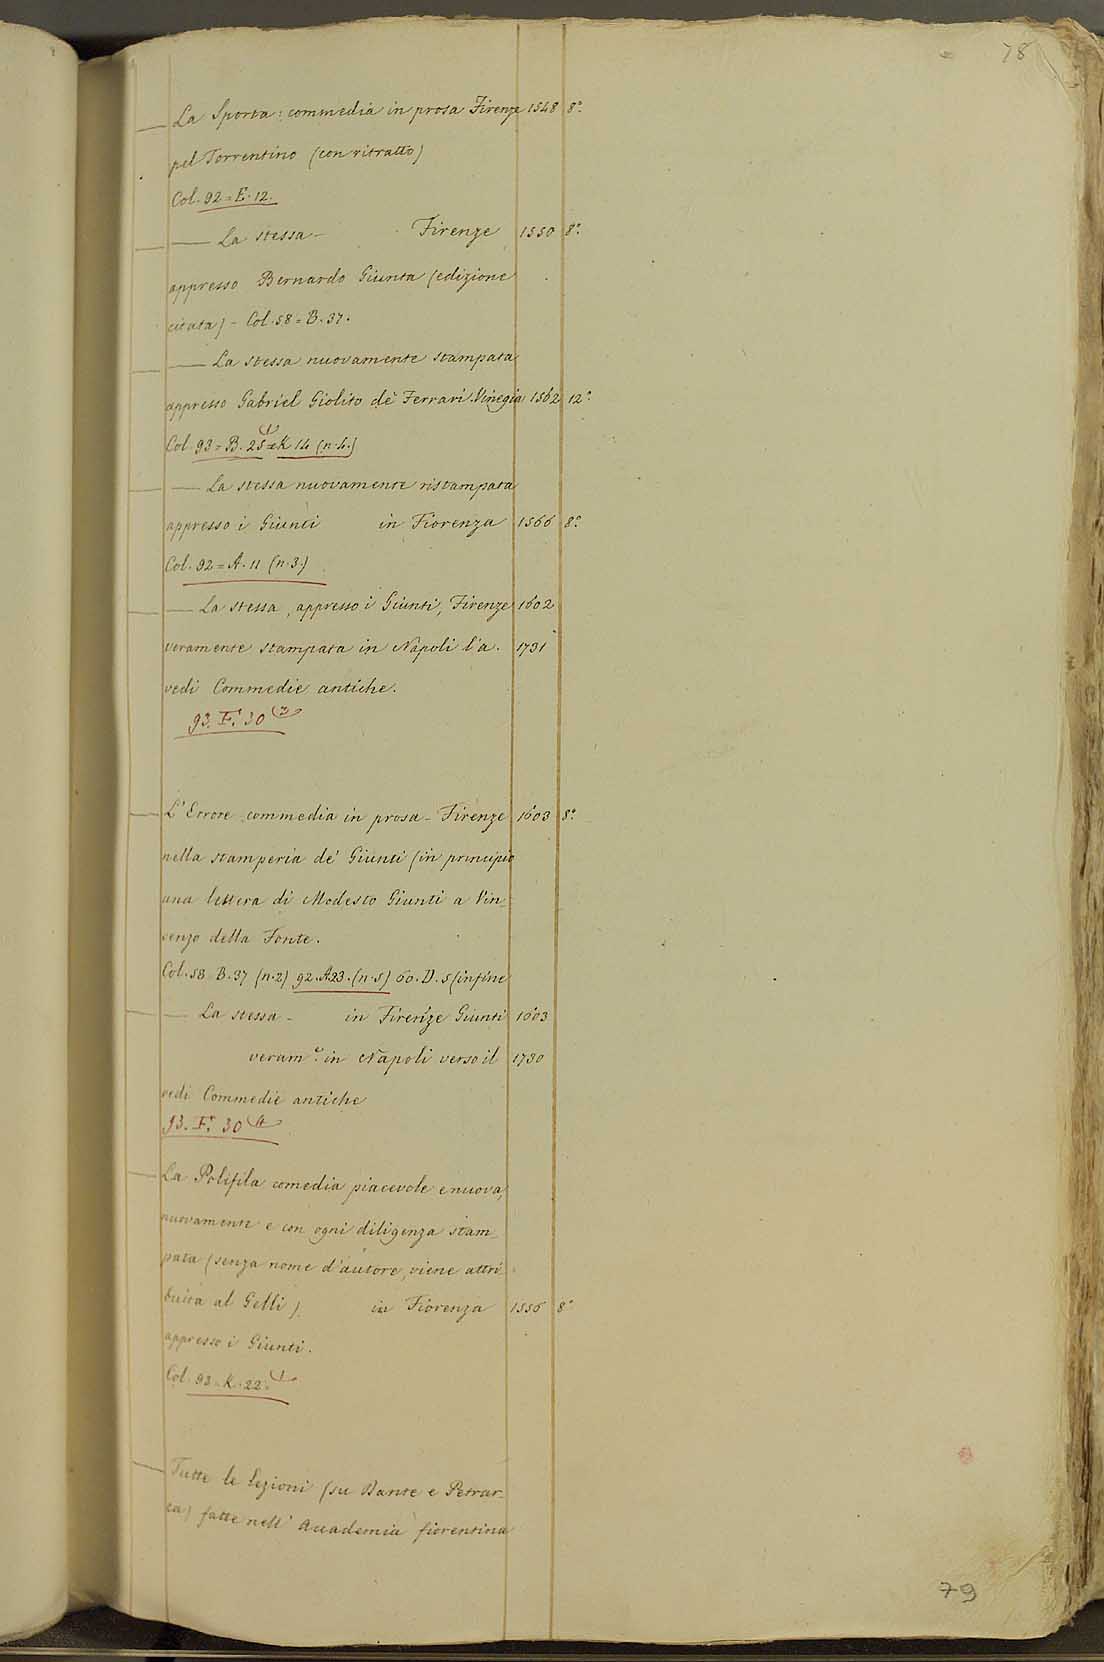 78
— La Sporta: commedia in prosa Firenze 1548 8°.
pel Torrentino (con ritratto)
Col. 92 = E. 12.
— — La stessa - Firenze 1550 8°.
appresso Bernardo Giunta (edizione
citata) - Col. 58 = B. 37.
— — La stessa nuovamente stampata
appresso Gabriel Giolito de' Ferrari. Vinegia 1562 12°.
Col. 93 = B. 25 (1 = K 14 (n. 4.)
— — La stessa nuovamente ristampata
appresso i Giunti in Fiorenza 1566 8°.
Col. 92 = A. 11 (n. 3.)
— — La stessa, appresso i Giunti, Firenze 1602
veramente stampata in Napoli l'a. 1731
vedi Commedie antiche.
93. F. 30 (3
— L'Errore commedia in prosa - Firenze 1603 8°.
nella stamperia de' Giunti (in principio
una lettera di Modesto Giunti a Vin=
senzo della Fonte.
Col. 58 B. 37 (n. 2) 92. A. 23. (n. 5) 60. D. 5 (infine
— — La stessa - in Firenze Giunti 1603
veram.e in Napoli verso il 1730
vedi Commedie antiche
93. F. 30 (4
— La Polifila comedia piacevole e nuova,
nuovamente e con ogni diligenza stam-
pata (senza nome d'autore, viene attri
buita al Gelli) in Fiorenza 1556 8°
appresso i Giunti.
Col. 93 = K. 22 = (1
— Tutte le Lezioni (su Dante e Petrar-
ca) fatte nell' Accademia fiorentina
79